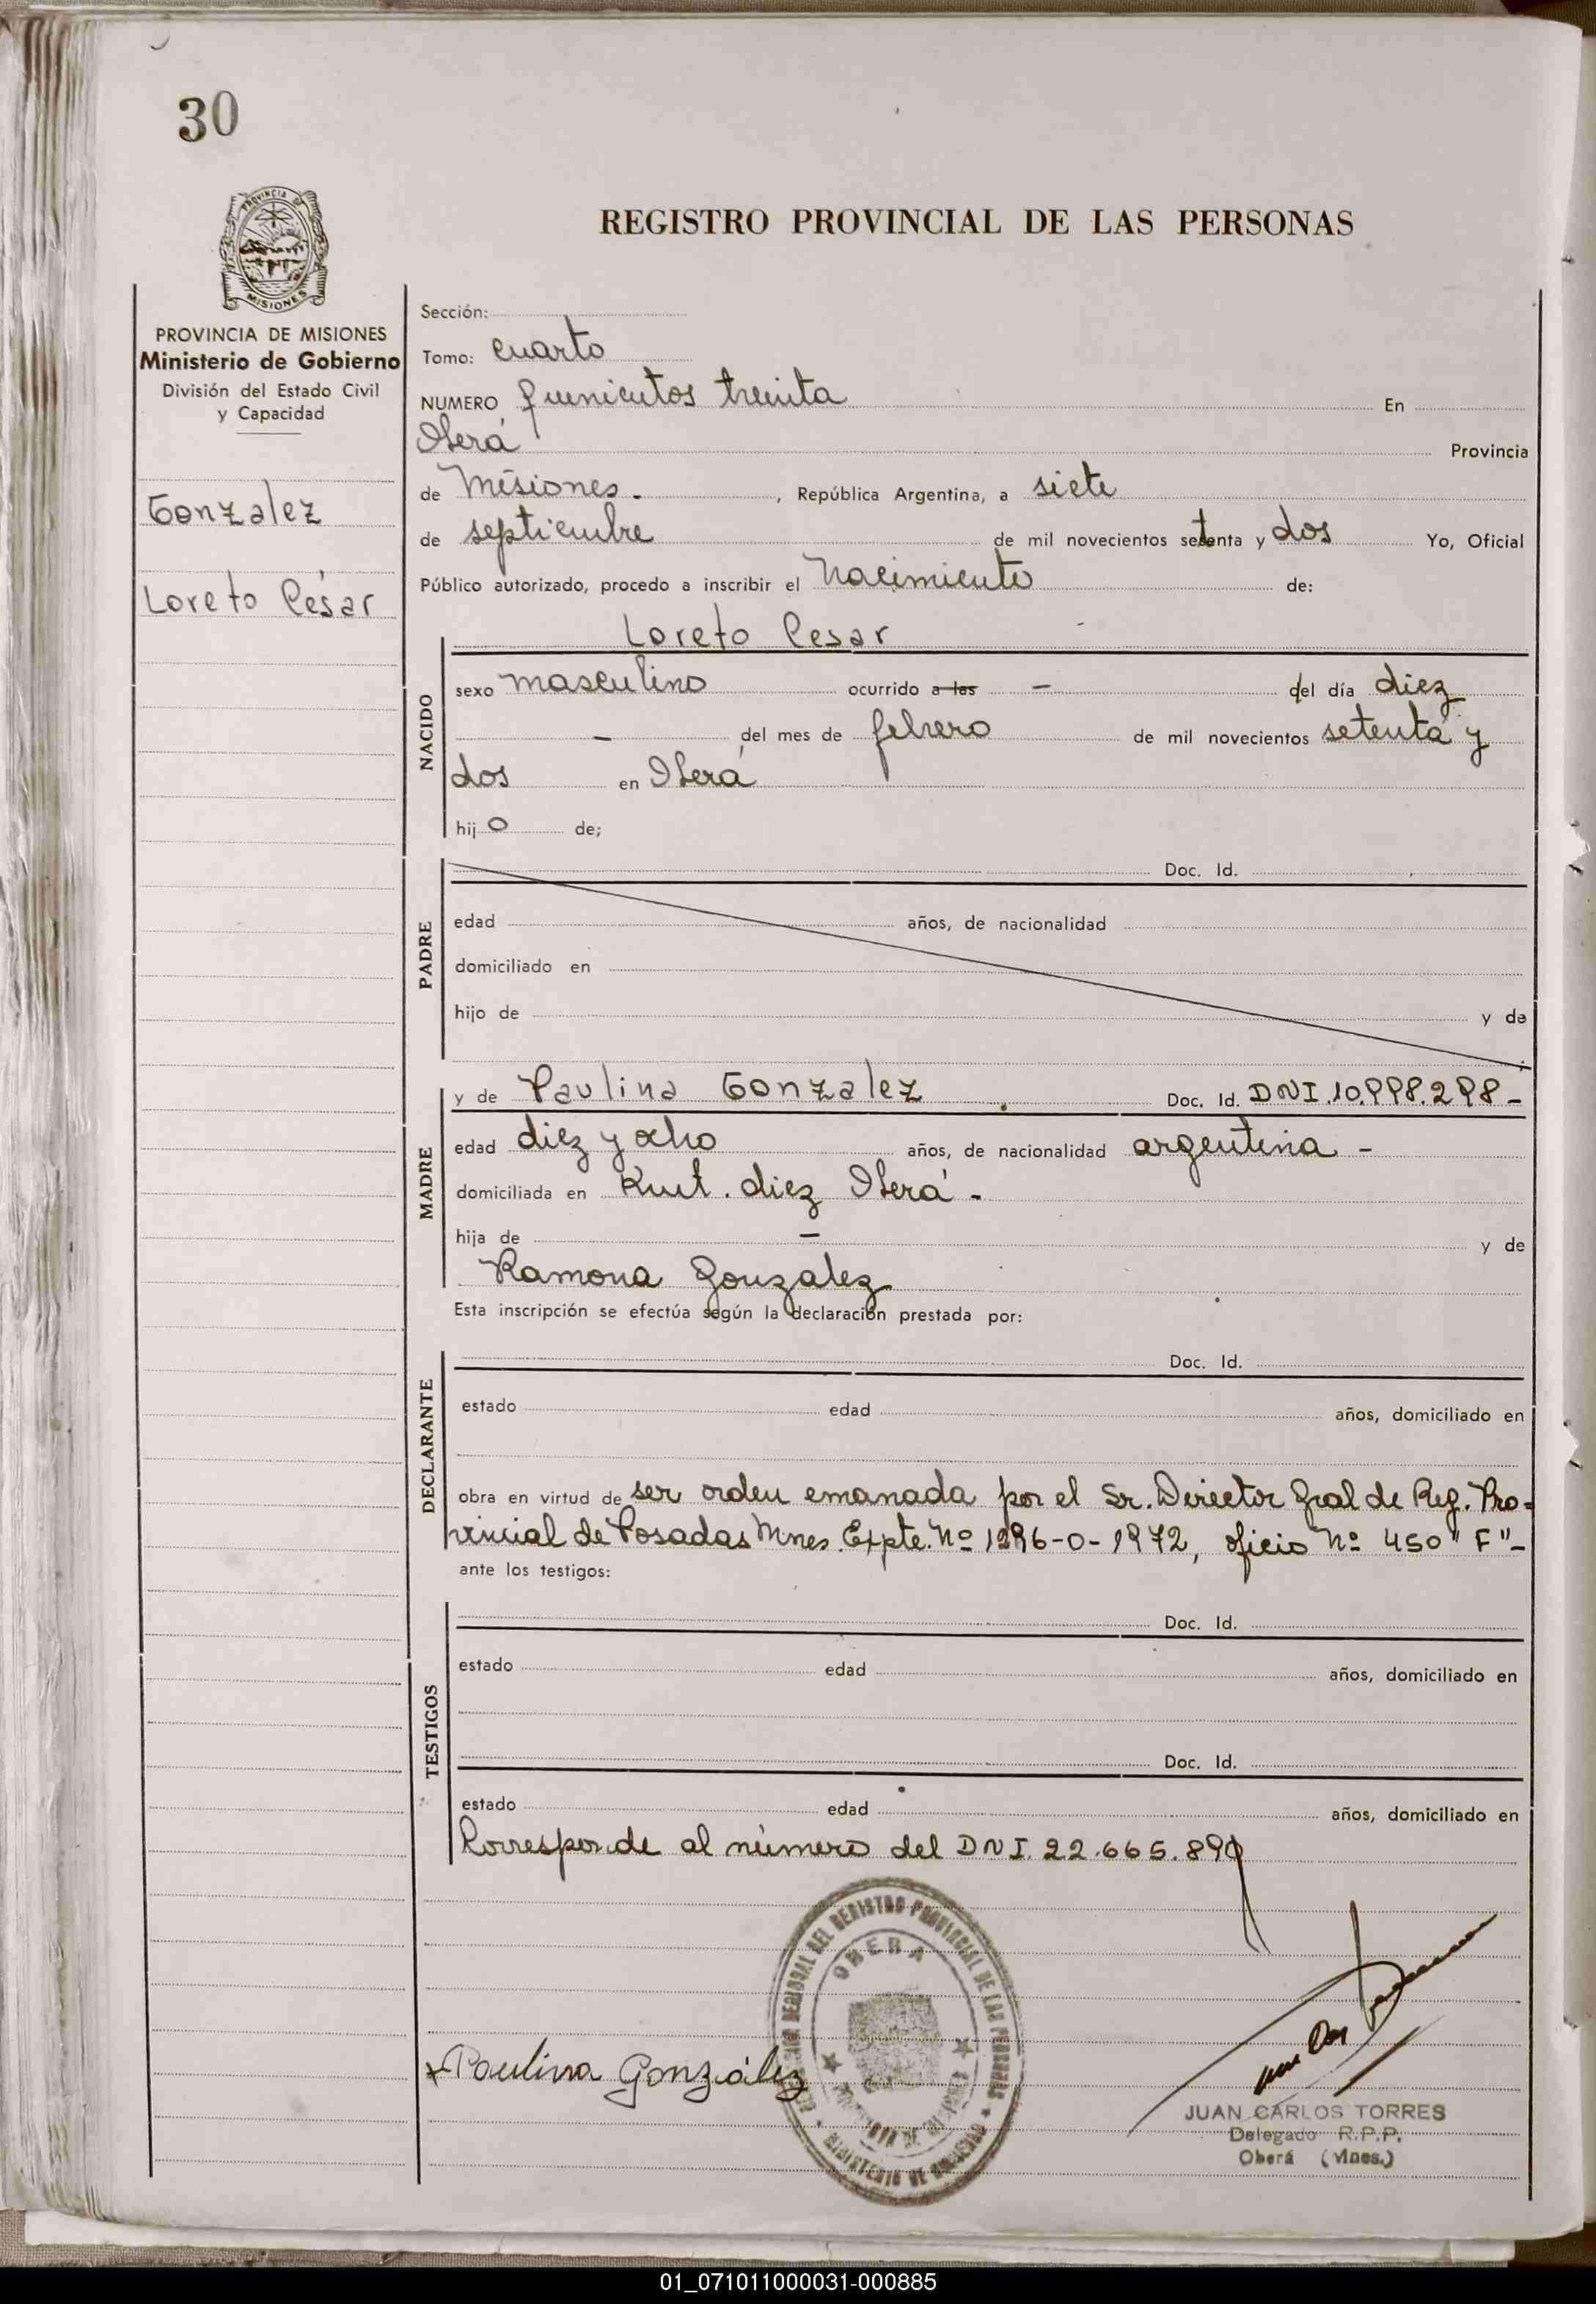 30
PROVINCIA DE
MISIONES
REGISTRO PROVINCIAL DE LAS PERSONAS
PROVINCIA DE MISIONES
Ministerio de Gobierno
División del Estado Civil
y Capacidad
Gonzalez
Loreto César
Sección:
Tomo: cuarto
NUMERO quinientos treinta En
Oberá Provincia
de Misiones. , República Argentina, a siete
de septiembre de mil novecientos setenta y dos Yo, Oficial
Público autorizado, procedo a inscribir el Nacimiento de:
Loreto Cesar
NACIDO
sexo masculino ocurrido a las - del día diez
- del mes de febrero de mil novecientos setenta y
dos en Oberá
hijo de;
PADRE
Doc. Id.
edad años, de nacionalidad
domiciliado en
hijo de y de
MADRE
y de Paulina Gonzalez Doc. Id. DNI.10.998.298-
edad diez y ocho años, de nacionalidad argentina -
domiciliada en Kmt. diez Oberá -
hija de - y de
Ramona Gonzalez
Esta inscripción se efectúa según la declaración prestada por:
DECLARANTE
Doc. Id.
estado edad años, domiciliado en
obra en virtud de ser orden emanada por el Sr. Director Gral de Reg. Pro=
vincial de Posadas Mnes. Expte. Nº 1296-0-1972, oficio Nº 450 "F"-
ante los testigos:
TESTIGOS
Doc. Id.
estado edad años, domiciliado en
Doc. Id.
estado edad años, domiciliado en
Corresponde al número del DNI. 22.665.890
REGIONAL DEL REGISTRO PROVINCIAL DE LAS PERSONAS
OBERA
MINISTERIO DE GOBIERNO
x Paulina González
JUAN CARLOS TORRES
Delegado R.P.P.
Oberá (Mnes.)
01_071011000031-000885